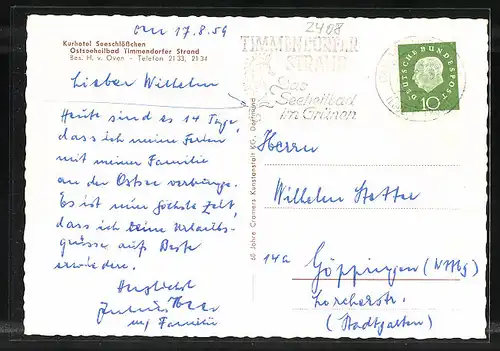 den 17.8.59
Kurhotel Seeschlößchen
Ostseeheilbad Timmendorfer Strand
Bes. H. v. Oven - Telefon 21 33, 21 34
Lieber Wilhelm
Heute sind es 14 Tage,
dass ich meine Ferien
mit meiner Familie
an der Ostsee verbringe.
Es ist nun höchste Zeit,
dass ich Deine Urlaubs-
grüsse aufs Beste
erwidere.
Herzlichst
u/ Familie
60 Jahre Cramers Kunstanstalt KG., Dortmund
2408
TIMMENDORFER
STRAND
Das
Seeheilbad
im Grünen
DEUTSCHE BUNDESPOST
10
Herrn
Wilhelm Stotter
14a Göppingen (Wttbg)
Lorcherstr.
(Stadtgarten)